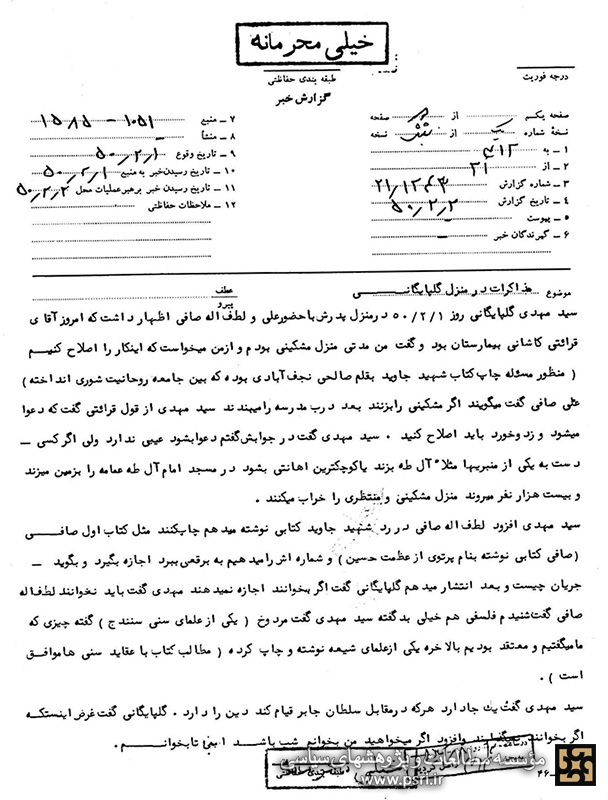 خیلی محرمانه
طبقه بندی حفاظتی
درجه فوریت
گزارش خبر
صفحه یکم از صفحه
نسخهٔ شماره یک از شش نسخه
۱ ـ به ۳۱۲
۲ ـ از ۲۱
۳ ـ شماره گزارش ۲۱/۱۲۴۳
۴ ـ تاریخ گزارش ۵۰/۲/۲
۵ ـ پیوست
۶ ـ گیرندگان خبر
۷ ـ منبع ۱۰۵۱ - ۱۵۸۵
۸ ـ منشأ
۹ ـ تاریخ وقوع ۵۰/۲/۱
۱۰ ـ تاریخ رسیدن خبر به منبع ۵۰/۲/۱
۱۱ ـ تاریخ رسیدن خبر برهبر عملیات محل ۵۰/۲/۲
۱۲ ـ ملاحظات حفاظتی
موضوع مذاکرات در منزل گلپایگانی
عطف
پیرو
سید مهدی گلپایگانی روز ۵۰/۲/۱ در منزل پدرش با حضور علی و لطف اله صافی اظهار داشت که امروز آقای
قرائتی کاشانی بیمارستان بود و گفت من مدتی منزل مشکینی بودم و از من میخواست که اینکار را اصلاح کنیم
( منظور مسئله چاپ کتاب شهید جاوید بقلم صالحی نجف آبادی بوده که بین جامعه روحانیت شوری انداخته )
علی صافی گفت میگویند اگر مشکینی را بزنند بعد درب مدرسه را میبندند سید مهدی از قول قرائتی گفت که دعوا
میشود و زد و خورد باید اصلاح کنید . سید مهدی گفت در جوابش گفتم دعوا بشود عیبی ندارد ولی اگر کسی ـ
دست به یکی از منبریها مثلاً آل طه بزند یا کوچکترین اهانتی بشود در مسجد امام آل طه عمامه را بزمین میزند
و بیست هزار نفر میروند منزل مشکینی و منتظری را خراب میکنند .
سید مهدی افزود لطف اله صافی در رد شهید جاوید کتابی نوشته میدهم چاپ کنند مثل کتاب اول صافی
( صافی کتابی نوشته بنام پرتوی از عظمت حسین ) و شماره اش را میدهیم به برقعی ببرد اجازه بگیرد و بگوید ـ
جریان چیست و بعد انتشار میدهم گلپایگانی گفت اگر بخوانند اجازه نمیدهند مهدی گفت باید نخوانند لطف اله
صافی گفت شنیدم فلسفی هم خیلی بد گفته سید مهدی گفت مردوخ ( یکی از علمای سنی سنندج ) گفته چیزی که
ما میگفتیم و معتقد بودیم بالاخره یکی از علمای شیعه نوشته و چاپ کرده ( مطالب کتاب با عقاید سنی ها موافق
است ) .
سید مهدی گفت یک جا دارد هر که در مقابل سلطان جابر قیام کند دین را دارد . گلپایگانی گفت غرض اینستکه
اگر بخوانند وافزود اگر میخواهید من بخوانم شب باشد تا بخوانم .
طبقه بندی حفاظتی
موسسه مطالعات و پژوهشهای سیاسی
www.psri.ir